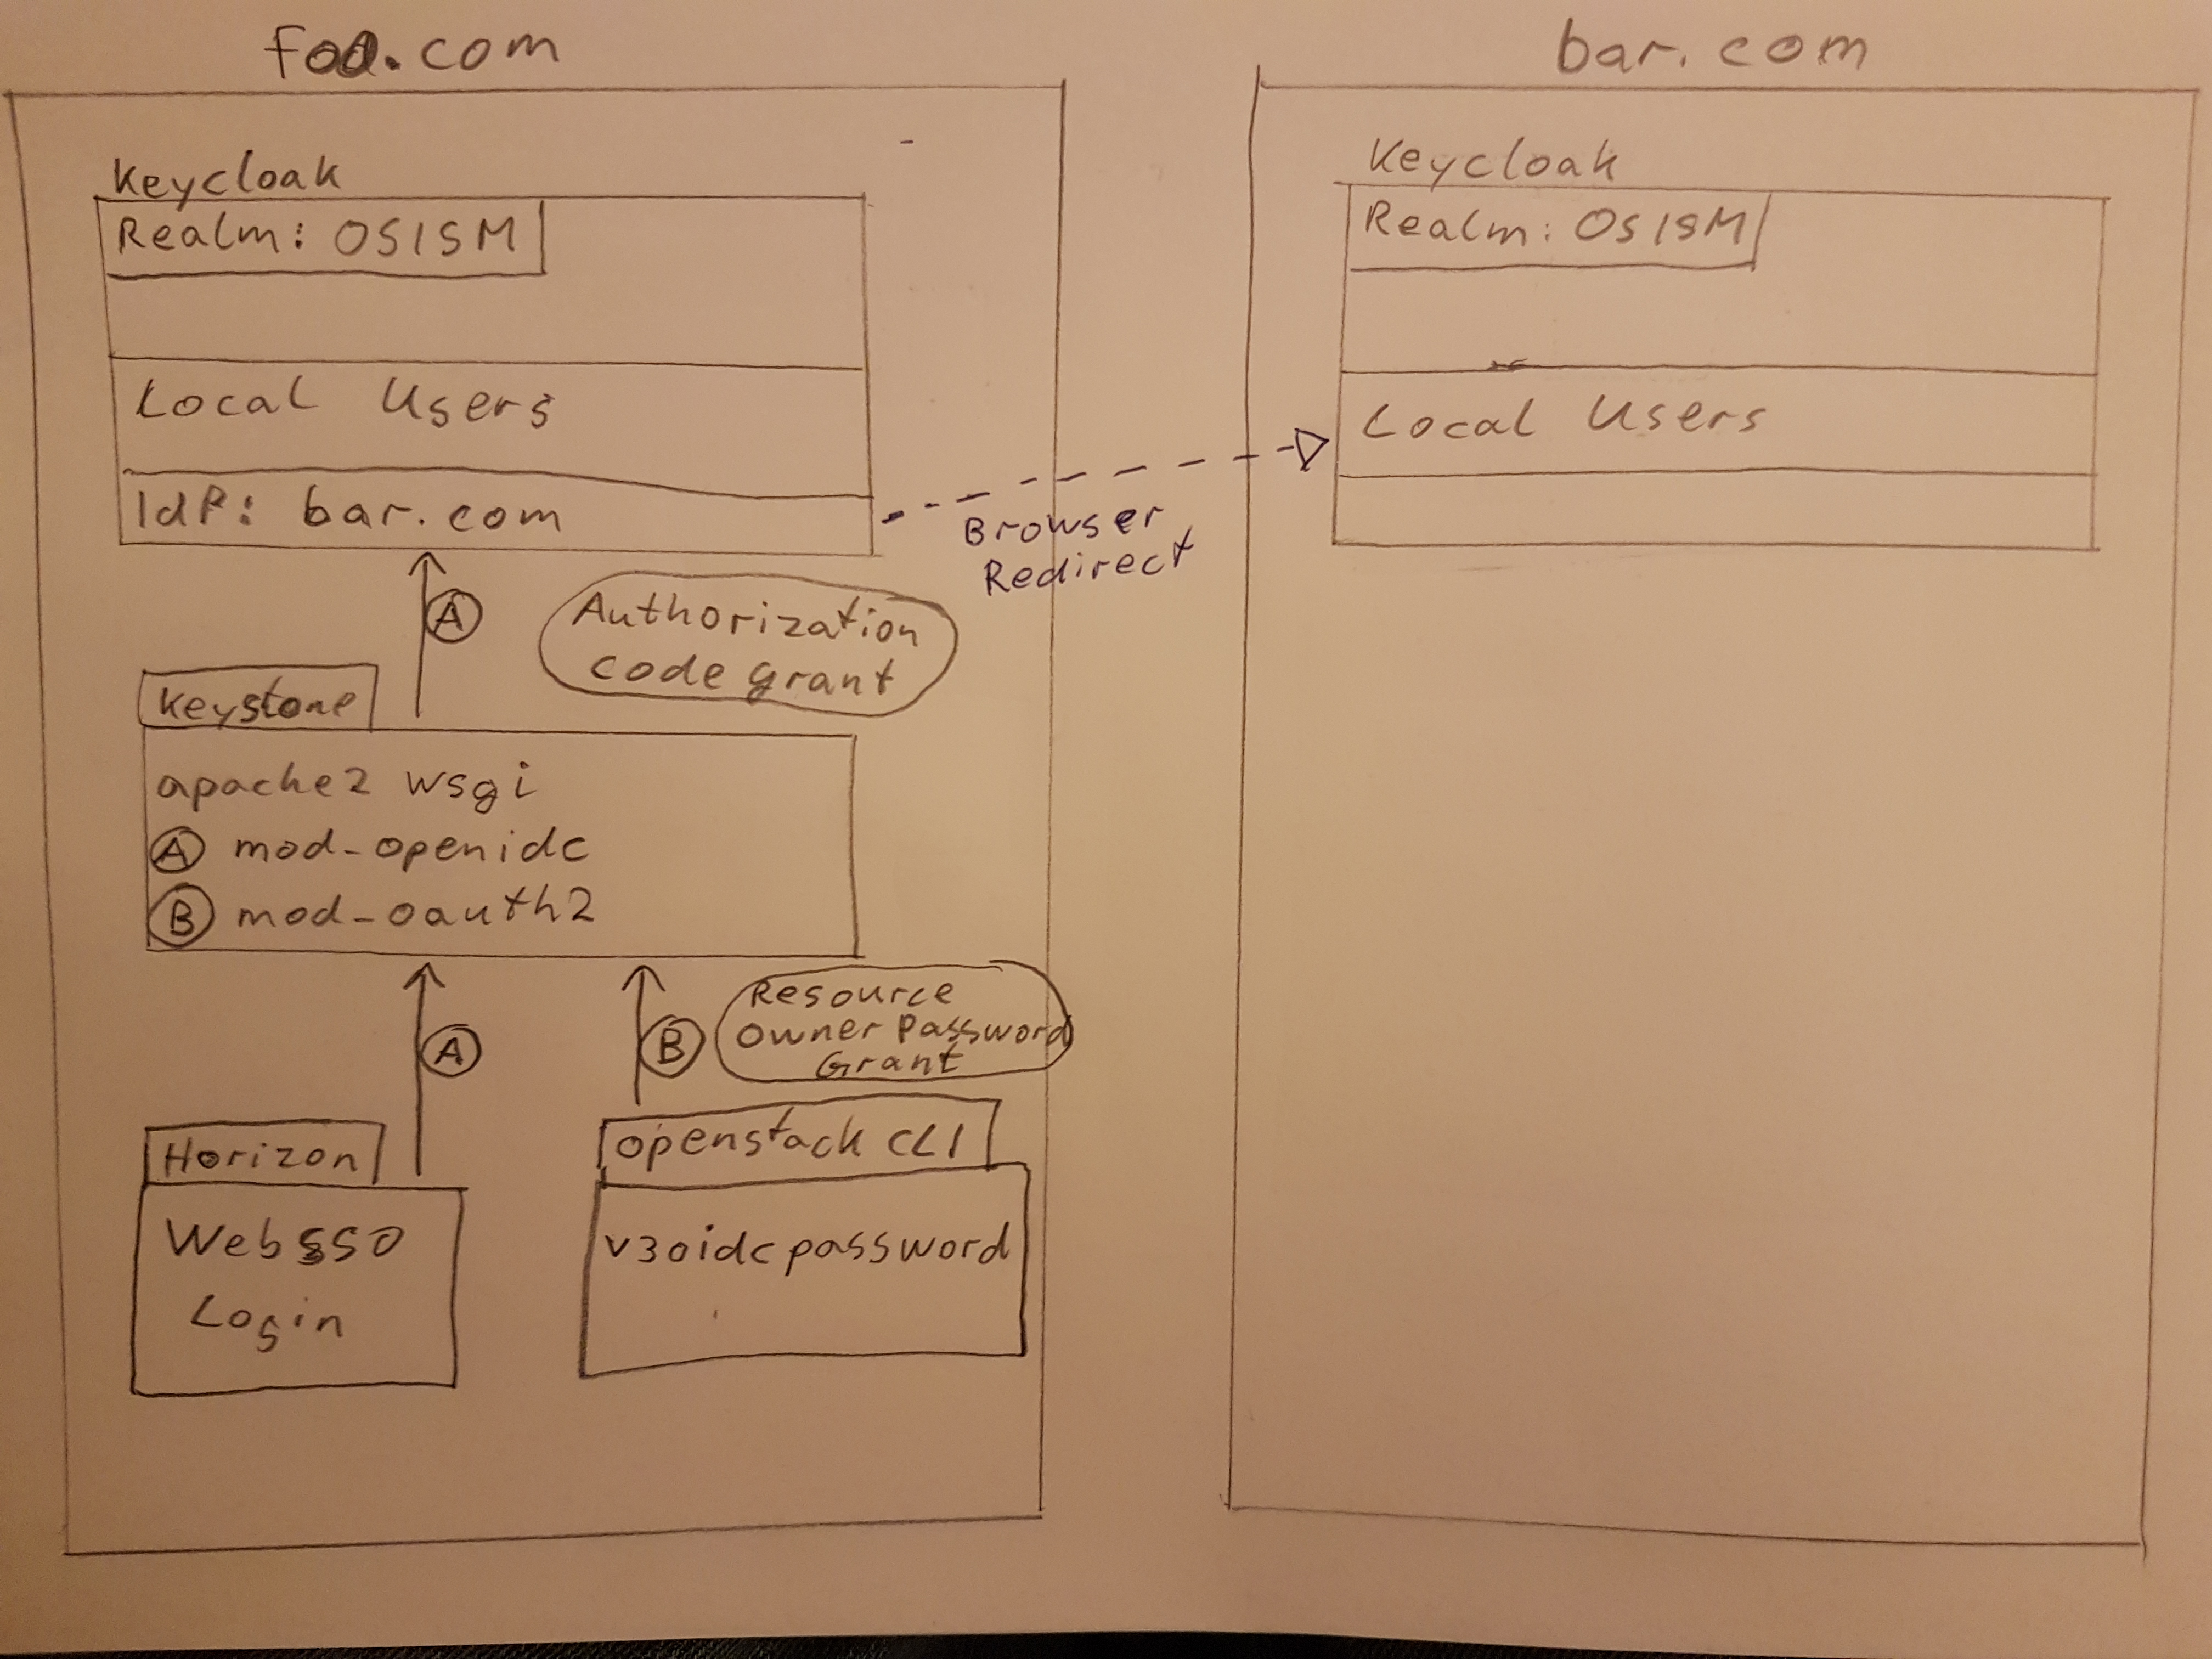 foo.com
Keycloak
Realm: OSISM
Local Users
IdP: bar.com
A
Authorization
code grant
Keystone
apache2 wsgi
A mod-openidc
B mod-oauth2
A
B
Resource
Owner Password
Grant
Horizon
WebSSO
Login
openstack CLI
v3oidcpassword
Browser
Redirect
bar.com
Keycloak
Realm: OSISM
Local Users